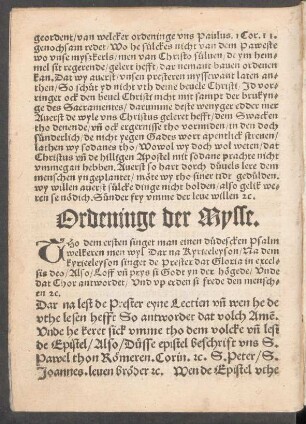 geordent/ van welcker ordeninge vns Paulus. 1 Cor. 11.
genochsam redet/ Wo he sülckes nicht van dem Paweste
wo vnse mysskerls/ men van Christo süluen/ de ym hem-
mel sit regerende/ gelert hefft/ dar nemant bauen ordenen
kan. Dat wy auerst vnsen presteren mysswant laten an-
then/ So schüt yd nicht vth deine heuele Christ. Jd vor-
ringet ock den heuel Christi nicht mit sampt der brukyn-
ge des Sacramentes/ darumme deste weynger edder mer
Auerst de wyle vns Christus geleret hefft/ dem Swacken
tho denende/ vñ ock ergernisse tho vormiden/ in den doch
sunderlick/ de nicht yegen Gades wort apentlick streuen/
laten wy ydt sodanes tho/ Wowol wy doch wol weten/ dat
Christus vñ de hilligen Apostel mit sodane prachte nicht
vmmegan hebben. Auerst so hart dorch düuels lere dem
menschen yngeplantet/ möte wy tho siner tidt gedülden.
wy willen auerst sülcke dinge nicht holden/ also gelik we-
ren se nödich. Sünder fry vmme der leue willen ꝛc.
Ordeninge der Mysse.
Tho dem ersten singet man einen düdescken Psalm
welkeren men wyl Dar na Kyrieeleyson/ Na dem
kyrieeleyson singet de Prester dat Gloria in excel
sis deo/ Also/ Loff vñ prys si Godt yn der högede/ Vnde
dat Chor antwordet/ Vnd vp erden si frede den mensch-
en ꝛc.
Dar na lest de Prester eyne Lectien vñ wen he de
vthe lesen hefft So antwordet dat volch Amē.
Vnde he keret sick vmme tho dem volcke vñ lest
de Epistel/ Also/ Düsse epistel beschrift vns S.
Pawel thon Römeren. Corin. ꝛc. S. Peter/ S.
Joannes. leuen bröder ꝛc. Wen de Epistel vthe